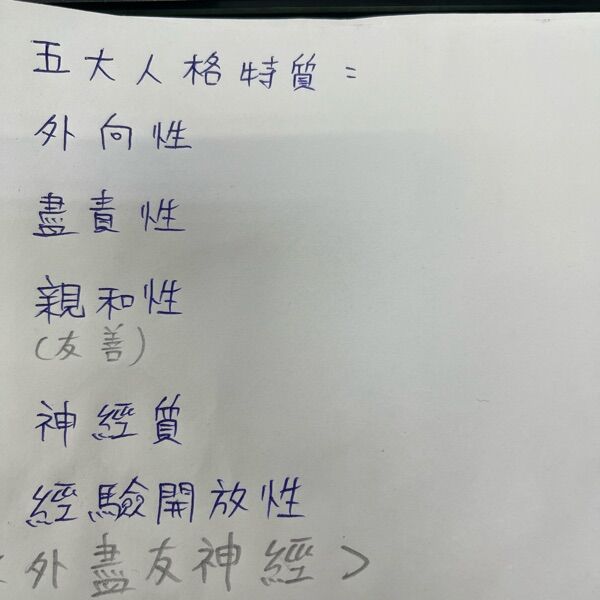 五大人格特質：
外向性
盡責性
親和性
(友善)
神經質
經驗開放性
<外盡友神經>